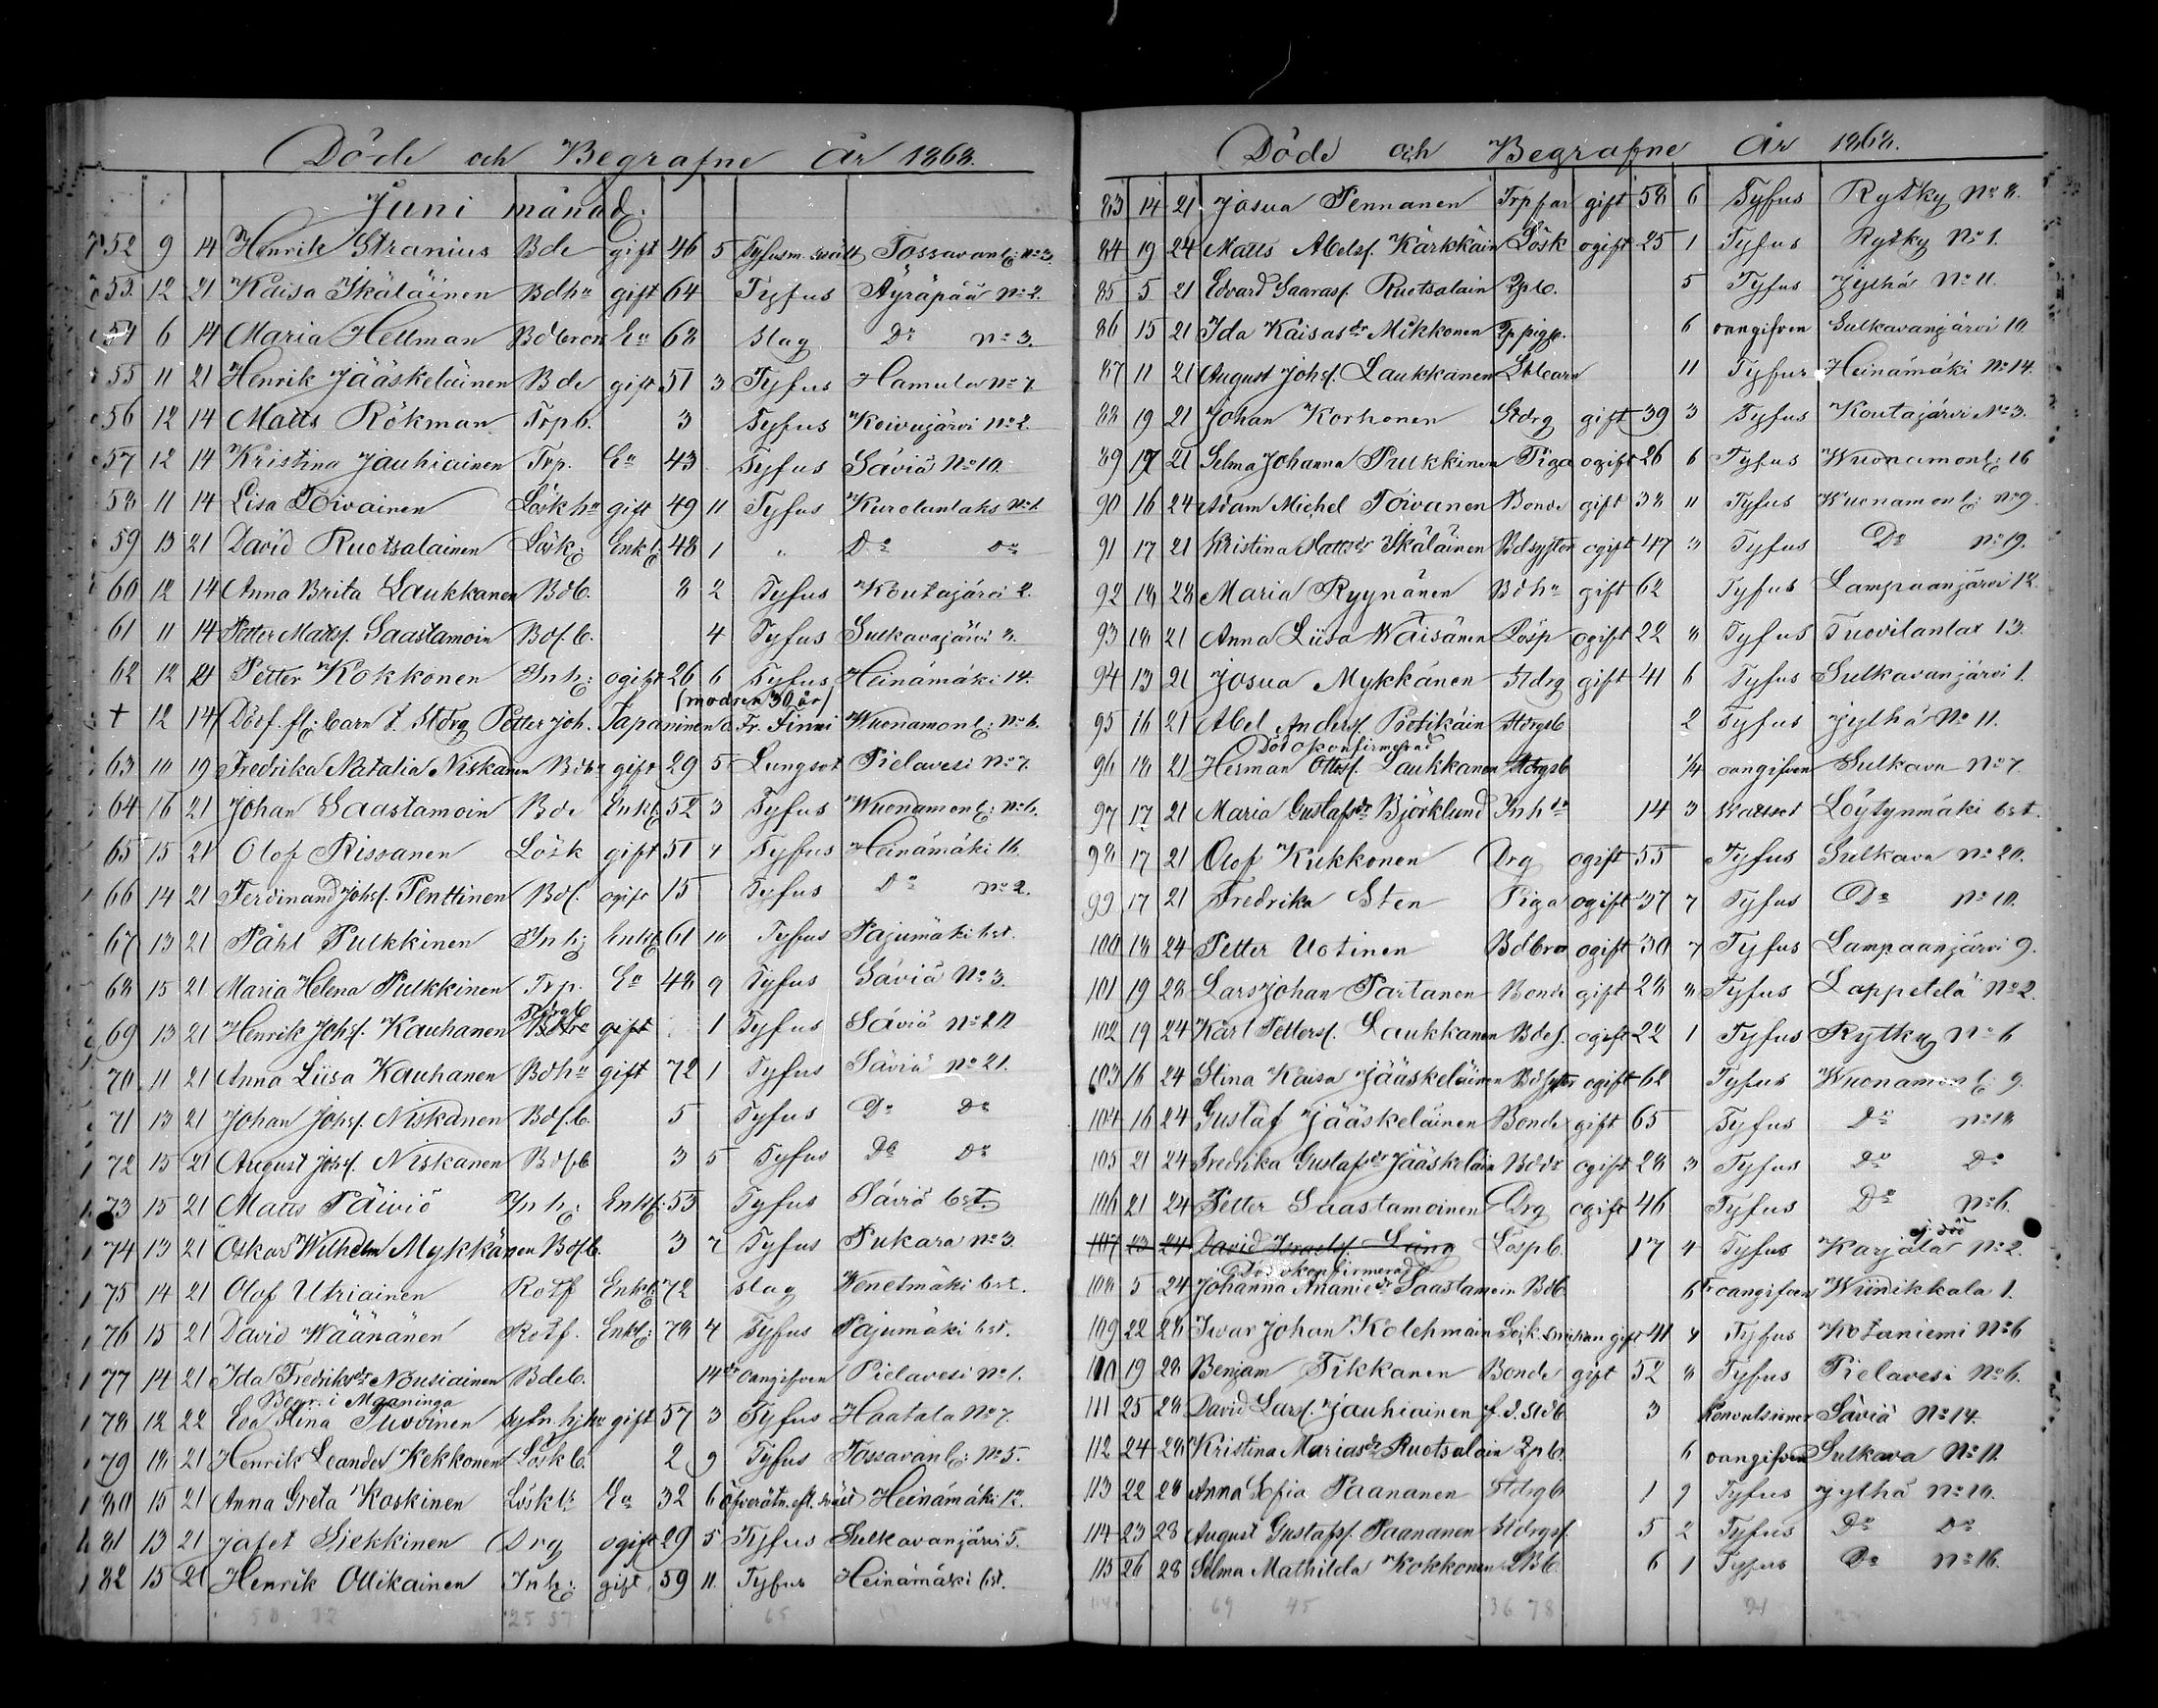 Döde och Begrafne År 1868.
Juni månad.
52 9 14 Henrik Stranius Bde gift 46 5 Tyfus m. svält Tossavanl: No 3.
53. 12 21 Kaisa Ikäläinen Bdhu gift 64 Tyfus Äyräpää No 2.
54 6 14 Maria Hellman Ea 68 slag Do No 3.
55 11 21 Henrik Jääskeläinen Bde gift 51 3 Tyfus Hamula No 7
56 12 14 Matts Rökman Trpb. 3 Tyfus Koivujärvi No 2.
57 12 14 Kristina Jauhiainen Trp. Ea 43 Tyfus Säviä No 10.
58 11 14 Lisa Toivainen Löskhu gift 49 11 Tyfus Kurolanlaks No 1.
59 13 21 David Ruotsalainen Lösk: Enkl: 48 1 " Do Do
60 12 14 Anna Brita Laukkanen Bdb. 8 2 Tyfus Koutajärvi 2.
61 11 14 Petter Matsf. Saastamoin Bdf.b. 4 Tyfus Sulkavajärvi
62 12 21 Petter Kokkonen Inh: ogift 26 6 Tyfus Heinämäki 14.
(modren 30 år)
+ 12 14 Döf. fl: barn t. Stdrg Petter Joh. Tapaninen o. Fr. Finni Wuonamonl: No 6.
63 10 19 Fredrika Natalia Niskanen gift 29 5 Lungsot Pielavesi No 7.
64 16 21 Johan Saastamoin Bde Enkl: 52 3 Tyfus Wuonamonl: No 6.
65 15 21 Olof Rissanen Lösk gift 51 4 Tyfus Heinämäki 16.
66 14 21 Ferdinand Johsf. Penttinen Bdf. ogift 15 Tyfus Do No 2.
67 13 21 Påhl Pulkkinen Inh: Enkl: 61 10 Tyfus Pajumäki bst.
68 15 21 Maria Helena Pulkkinen Trp. Ea 48 9 Tyfus Säviä No 3.
Stdrgb
69 13 21 Henrik Johsf. Kauhanen gift 1 Tyfus Säviä No 20
70. 11 21 Anna Liisa Kauhanen Bdhu gift 72 1 Tyfus Säviä No 21.
71 13 21 Johan Johsf. Niskanen Bdf.b. 5 Tyfus Do Do
72 15 21 August Johsf. Niskanen Bdfb 3 5 Tyfus Do Do
73 15 21 Matts Päiviö Inh: Enkl: 53 Tyfus Säviä bst.
74 13 21 Oskar Wilhelm Mykkänen Bdf.b. 3 7 Tyfus Pukara No 3.
75 14 21 Olof Utriainen Rotf Enkl: 72 slag Wenetmäki bst.
76 15 21 David Wäänänen Rotf. Enkl: 78 4 Tyfus Pajumäki bst.
77 14 21 Ida Fredriksdr Nousiainen Bdeb. 14 dr oangifven Pielavesi No 1.
Begr. i Maaninga
78 12 22 Eva Stina gift 57 3 Tyfus Haatala No 7.
79 18 21 Henrik Leander Kekkonen Löskb. 2 9 Tyfus Tossavanl: No 5.
80 15 21 Anna Greta Koskinen Ea 32 6 öfverätn. eft. svält Heinämäki 12.
81 13 21 Jafet Siekkinen Drg ogift 29 5 Tyfus Sulkavanjärvi 5.
82 15 21 Henrik Ollikainen Inh: gift 59 11. Tyfus Heinämäki bst.
Döde och Begrafne År 1868.
83 14 21 Josua Pennanen Trpfar gift 58 6 Tyfus Rytky No 8.
84 19 24 Matts Abelsf. Kärkkäin Lösk ogift 25 1 Tyfus Rytky No 1.
85 5 21 Edvard Saarasf. Ruotsalain 5 Tyfus Jylhä No 11.
86 15 21 Ida Kaisasdr Mikkonen 6 oangifven Sulkavanjärvi 10
87 11 21 August Johsf. Laukkanen 11 Tyfus Heinämäki No 14.
88 19 21 Johan Korhonen Stdrg gift 39 3 Tyfus Koutajärvi No 3.
89 17 21 Selma Johanna Pulkkinen Piga ogift 26 6 Tyfus Wuonamonl: 16
90 16 24 Adam Michel Toivanen Bonde gift 38 11 Tyfus Wuonamonl: No 9.
91 17 21 Kristina Mattsdr Ikäläinen Bdsyster ogift 47 3 Tyfus Do No 19.
92 18 28 Maria Ryynänen Bdhu gift 62 Tyfus Lampaanjärvi 12.
93 18 21 Anna Liisa Wäisänen Lösp ogift 22 8 Tyfus Tuovilanlax 13.
94 13 21 Josua Mykkänen Stdrg gift 41 6 Tyfus Sulkavanjärvi 1.
95 16 21 Abel Andersf. Stdrgsb 2 Tyfus Jylhä No 11.
Död okonfirmerad
96 18 21 Herman Ottosf. Laukkanen Stdrgsb 1/4 oangifven Sulkava No 7.
97 17 21 Maria Gustafsdr Björklund 14 3 Löytynmäki bst.
98 17 21 Olof Kukkonen Drg ogift 55 Tyfus Sulkava No 20.
99 17 21 Fredrika Sten Piga ogift 37 7 Tyfus Do No 10.
100 18 24 Petter Uotinen Bdbro ogift 30 7 Tyfus Lampaanjärvi 9.
101 19 28 Lars Johan Partanen Bonde gift 28 8 Tyfus Lappetelä No 2.
102 19 24 Karl Pettersf. Laukkanen Bdef. ogift 22 1 Tyfus Rytky No 6
103 16 24 Stina Kaisa Jääskeläinen Bdsyster ogift 62 Tyfus Wuonamonl: 9.
104 16 24 Gustaf Jääskeläinen Bonde gift 65 Tyfus Do No 18
105 21 24 Fredrika Gustafsdr Jääskeläin Bddr ogift 28 3 Tyfus Do Do
106 21 24 Petter Saastamoinen Drg ogift 46 Tyfus Do No 6.
ej död
107 23 24 David Israelsf. Läng Löspb. 17 4 Tyfus Karjala No 2.
Död okonfirmerad
108 5 24 Johanna Ananiedr Saastamoin Bdb 6 oangifven Wiinikkala 1.
109 22 28 Iwar Johan Kolehmain gift 41 4 Tyfus Kotaniemi No 6
110 19 28 Benjam Tikkanen Bonde gift 52 8 Tyfus Pielavesi No 6.
111 25 28 David Larsf. Jauhiainen 3 Konvulsioner Säviä No 14.
112 24 28 Kristina Mariasdr Ruotsalain 6 oangifven Sulkava No 11.
113 22 28 Anna Sofia Paananen Stdrgb 1 9 Tyfus Jylhä No 10.
114 23 28 August Gustafsf. Paananen Stdrgsf. 5 2 Tyfus Do Do
115 26 28 Selma Mathilda Kokkonen 6 1 Tyfus Do No 16.